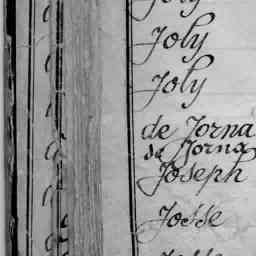 Joly
Joly
Joly
de Jorna
de Jorna
Joseph
Josse
Josse